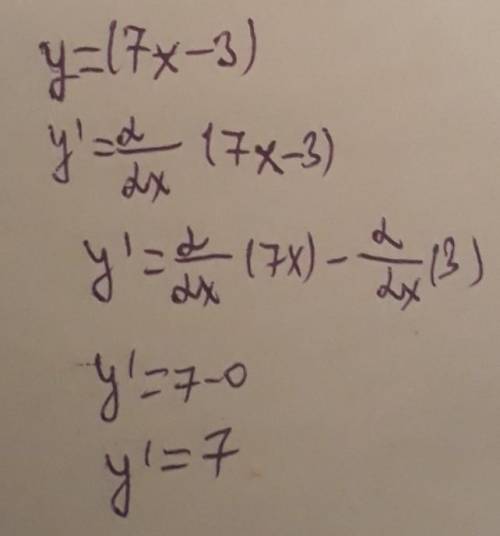 y=(7x-3)
y'=d/dx (7x-3)
y'=d/dx (7x)-d/dx(3)
y'=7-0
y'=7